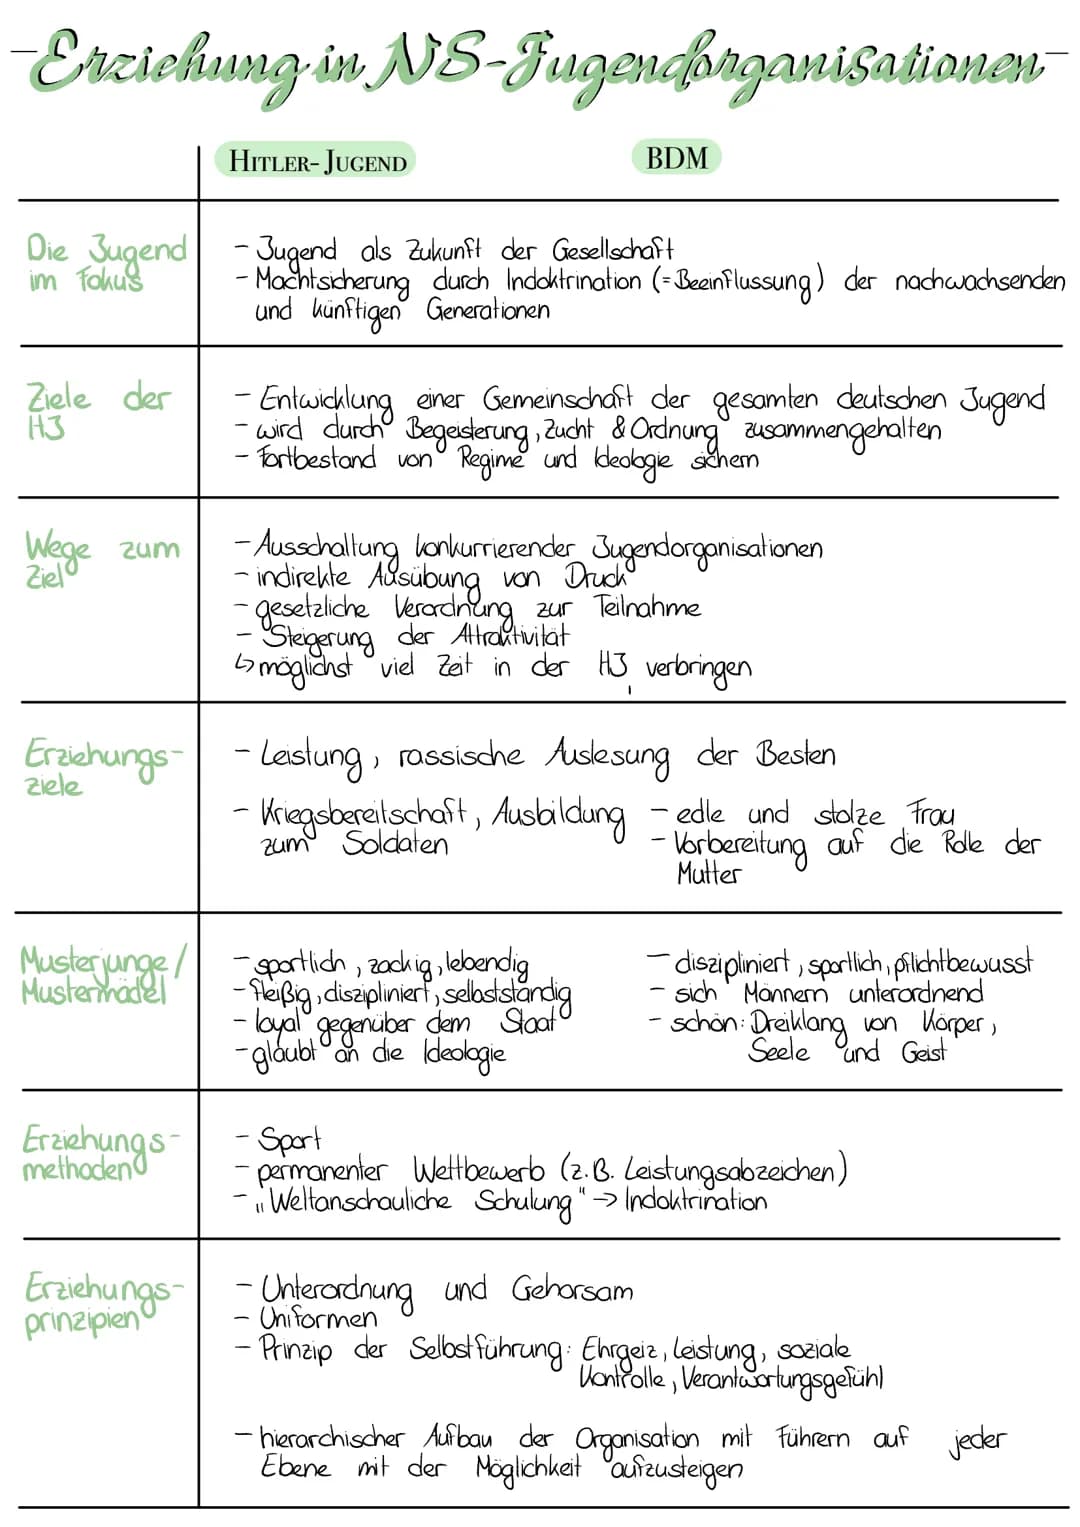 -Erziehung in NS-Jugendorganisationen-
HITLER-JUGEND
BDM
Die Jugend
im Fokus
- Jugend als Zukunft der Gesellschaft
- Machtsicherung durch Indoktrination (=Beeinflussung) der nachwachsenden
und künftigen Generationen
Ziele der
HJ
- Entwicklung einer Gemeinschaft der gesamten deutschen Jugend
- wird durch Begeisterung, Zucht & Ordnung zusammengehalten
- Fortbestand von Regime und Ideologie sichern
Wege zum
Ziel
- Ausschaltung konkurrierender Jugendorganisationen
- indirekte Ausübung von Druck
- gesetzliche Verordnung zur Teilnahme
- Steigerung der Attraktivität
↳ möglichst viel Zeit in der HJ verbringen
Erziehungs-
ziele
- Leistung, rassische Auslesung der Besten
- Kriegsbereitschaft, Ausbildung
zum Soldaten
- edle und stolze Frau
- Vorbereitung auf die Rolle der
Mutter
Musterjunge/
Mustermädel
- sportlich, zackig, lebendig
- fleißig, diszipliniert, selbstständig
- loyal gegenüber dem Staat
- glaubt an die Ideologie
- diszipliniert, sportlich, pflichtbewusst
- sich Männern unterordnend
- schön: Dreiklang von Körper,
Seele und Geist
Erziehungs-
methoden
- Sport
- permanenter Wettbewerb (z.B. Leistungsabzeichen)
- „Weltanschauliche Schulung" → Indoktrination
Erziehungs-
prinzipien
- Unterordnung und Gehorsam
- Uniformen
- Prinzip der Selbstführung: Ehrgeiz, Leistung, soziale
Kontrolle, Verantwortungsgefühl
- hierarchischer Aufbau der Organisation mit Führern auf jeder
Ebene mit der Möglichkeit aufzusteigen